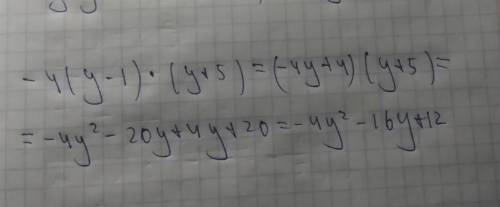 -4(y-1)·(y+5)=(-4y+4)(y+5)=
=-4y²-20y+4y+20=-4y²-16y+12